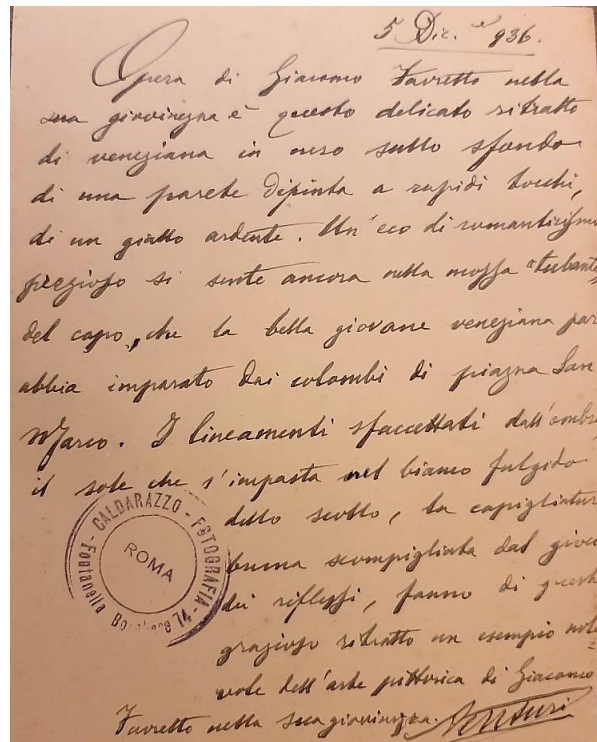 5 Dic.e 936.
Opera di Giacomo Favretto nella
sua giovinezza è questo delicato ritratto
di veneziana in nero sullo sfondo
di una parete dipinta a rapidi tocchi,
di un giallo ardente. Un'eco di romanticismo
prezioso si sente ancora nella mossa "tubante"
del capo, che la bella giovane veneziana par
abbia imparato dai colombi di piazza San
Marco. I lineamenti sfaccettati dall'ombra
il sole che s'impasta nel bianco fulgido
dello scollo, la capigliatura
bruna scompigliata dal gioco
dei riflessi, fanno di questo
grazioso ritratto un esempio note=
vole dell'arte pittorica di Giacomo
Favretto nella sua giovinezza. AVenturi
CALDARAZZO - FOTOGRAFIA -
Fontanella 74
ROMA